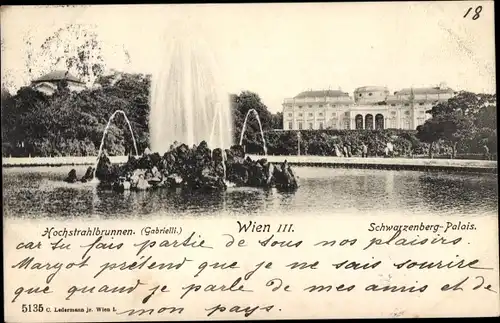 18
Hochstrahlbrunnen. (Gabrielli.) Wien III. Schwarzenberg-Palais.
car tu fais partie de tous nos plaisirs.
Margot prétend que je ne sais sourire
que quand je parle de mes amis et de
mon pays.
5135 C. Ledermann jr. Wien I.